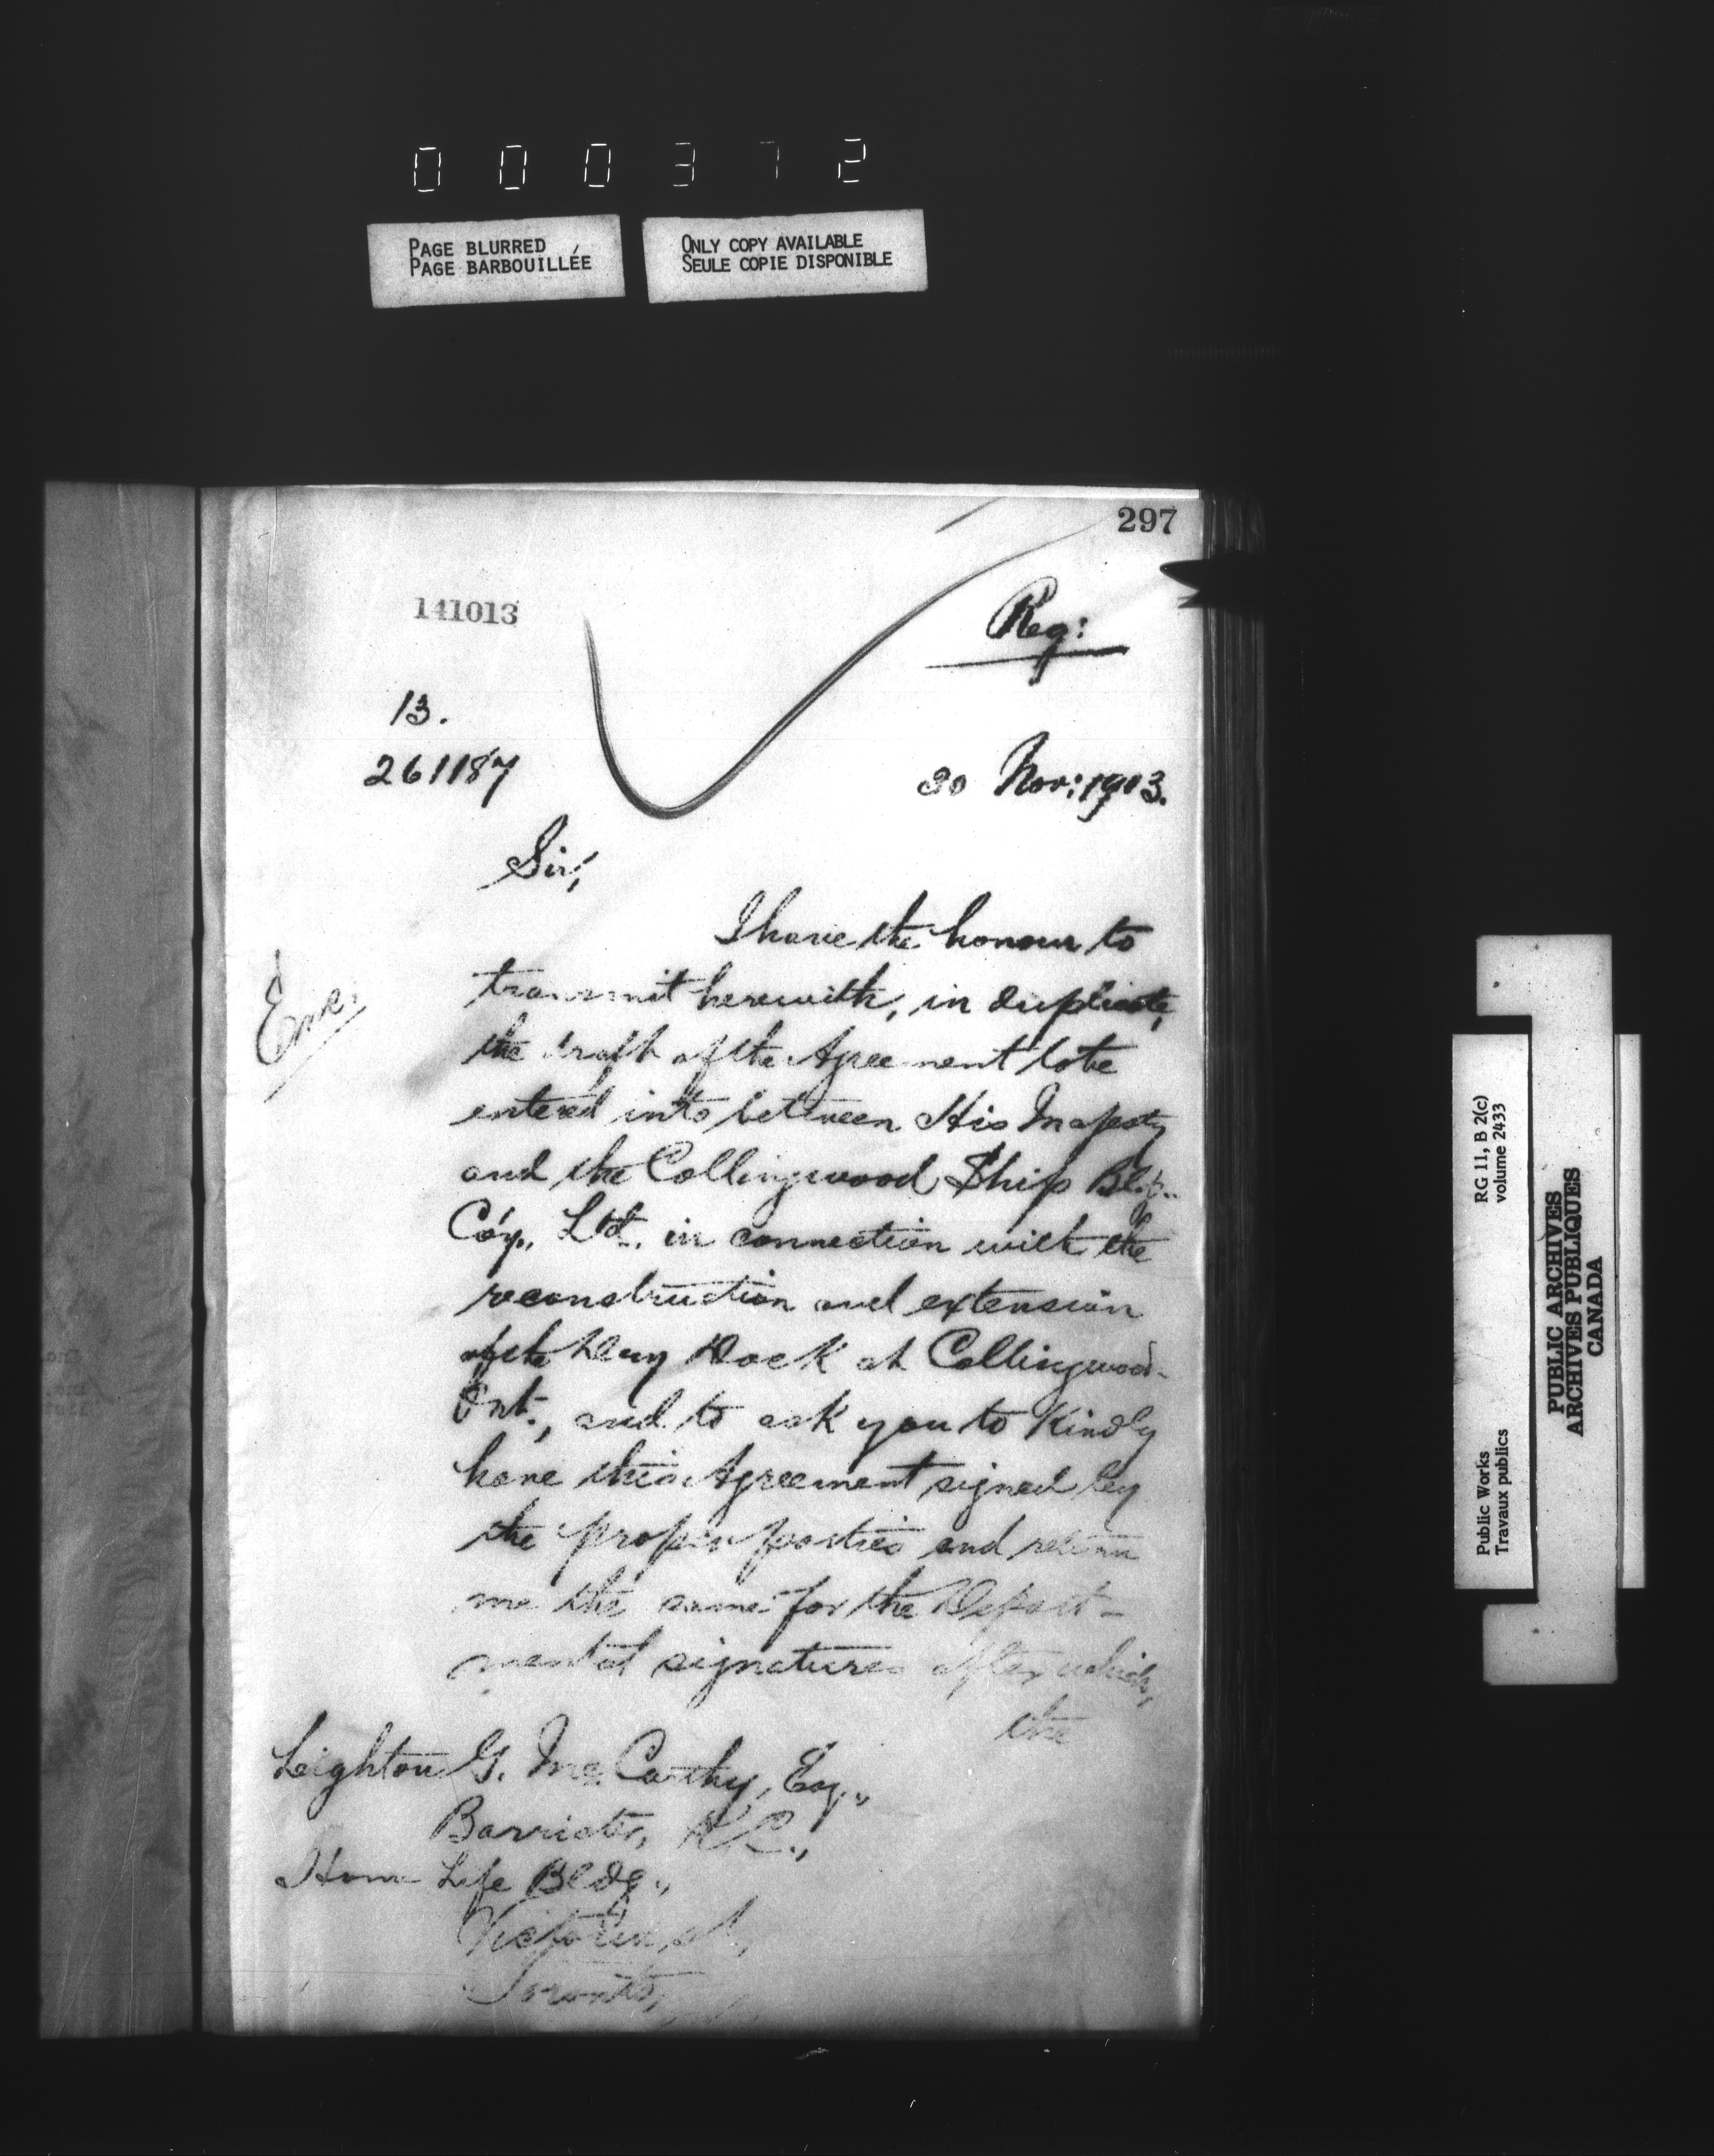 000372
PAGE BLURRED
PAGE BARBOUILLÉE
ONLY COPY AVAILABLE
SEULE COPIE DISPONIBLE
297
141013
Reg:
13.
261187
30 Nov: 1903.
Sir;
I have the honour to
transmit herewith, in duplicate,
the draft of the Agreement to be
entered into between His Majesty
and the Collingwood Ship Bldg.
Co'y., Ltd. in connection with the
reconstruction and extension
of the Dry Dock at Collingwood
Ont., and to ask you to kindly
have this Agreement signed by
the proper parties and return
me the same for the Depart-
mental signatures after which,
the
Leighton G. McCarthy, Esq.,
Barrister, K.C.,
Home Life Bldg.,
Victoria st,
Toronto,
RG 11, B 2(c)
volume 2433
Public Works
Travaux publics
PUBLIC ARCHIVES
ARCHIVES PUBLIQUES
CANADA